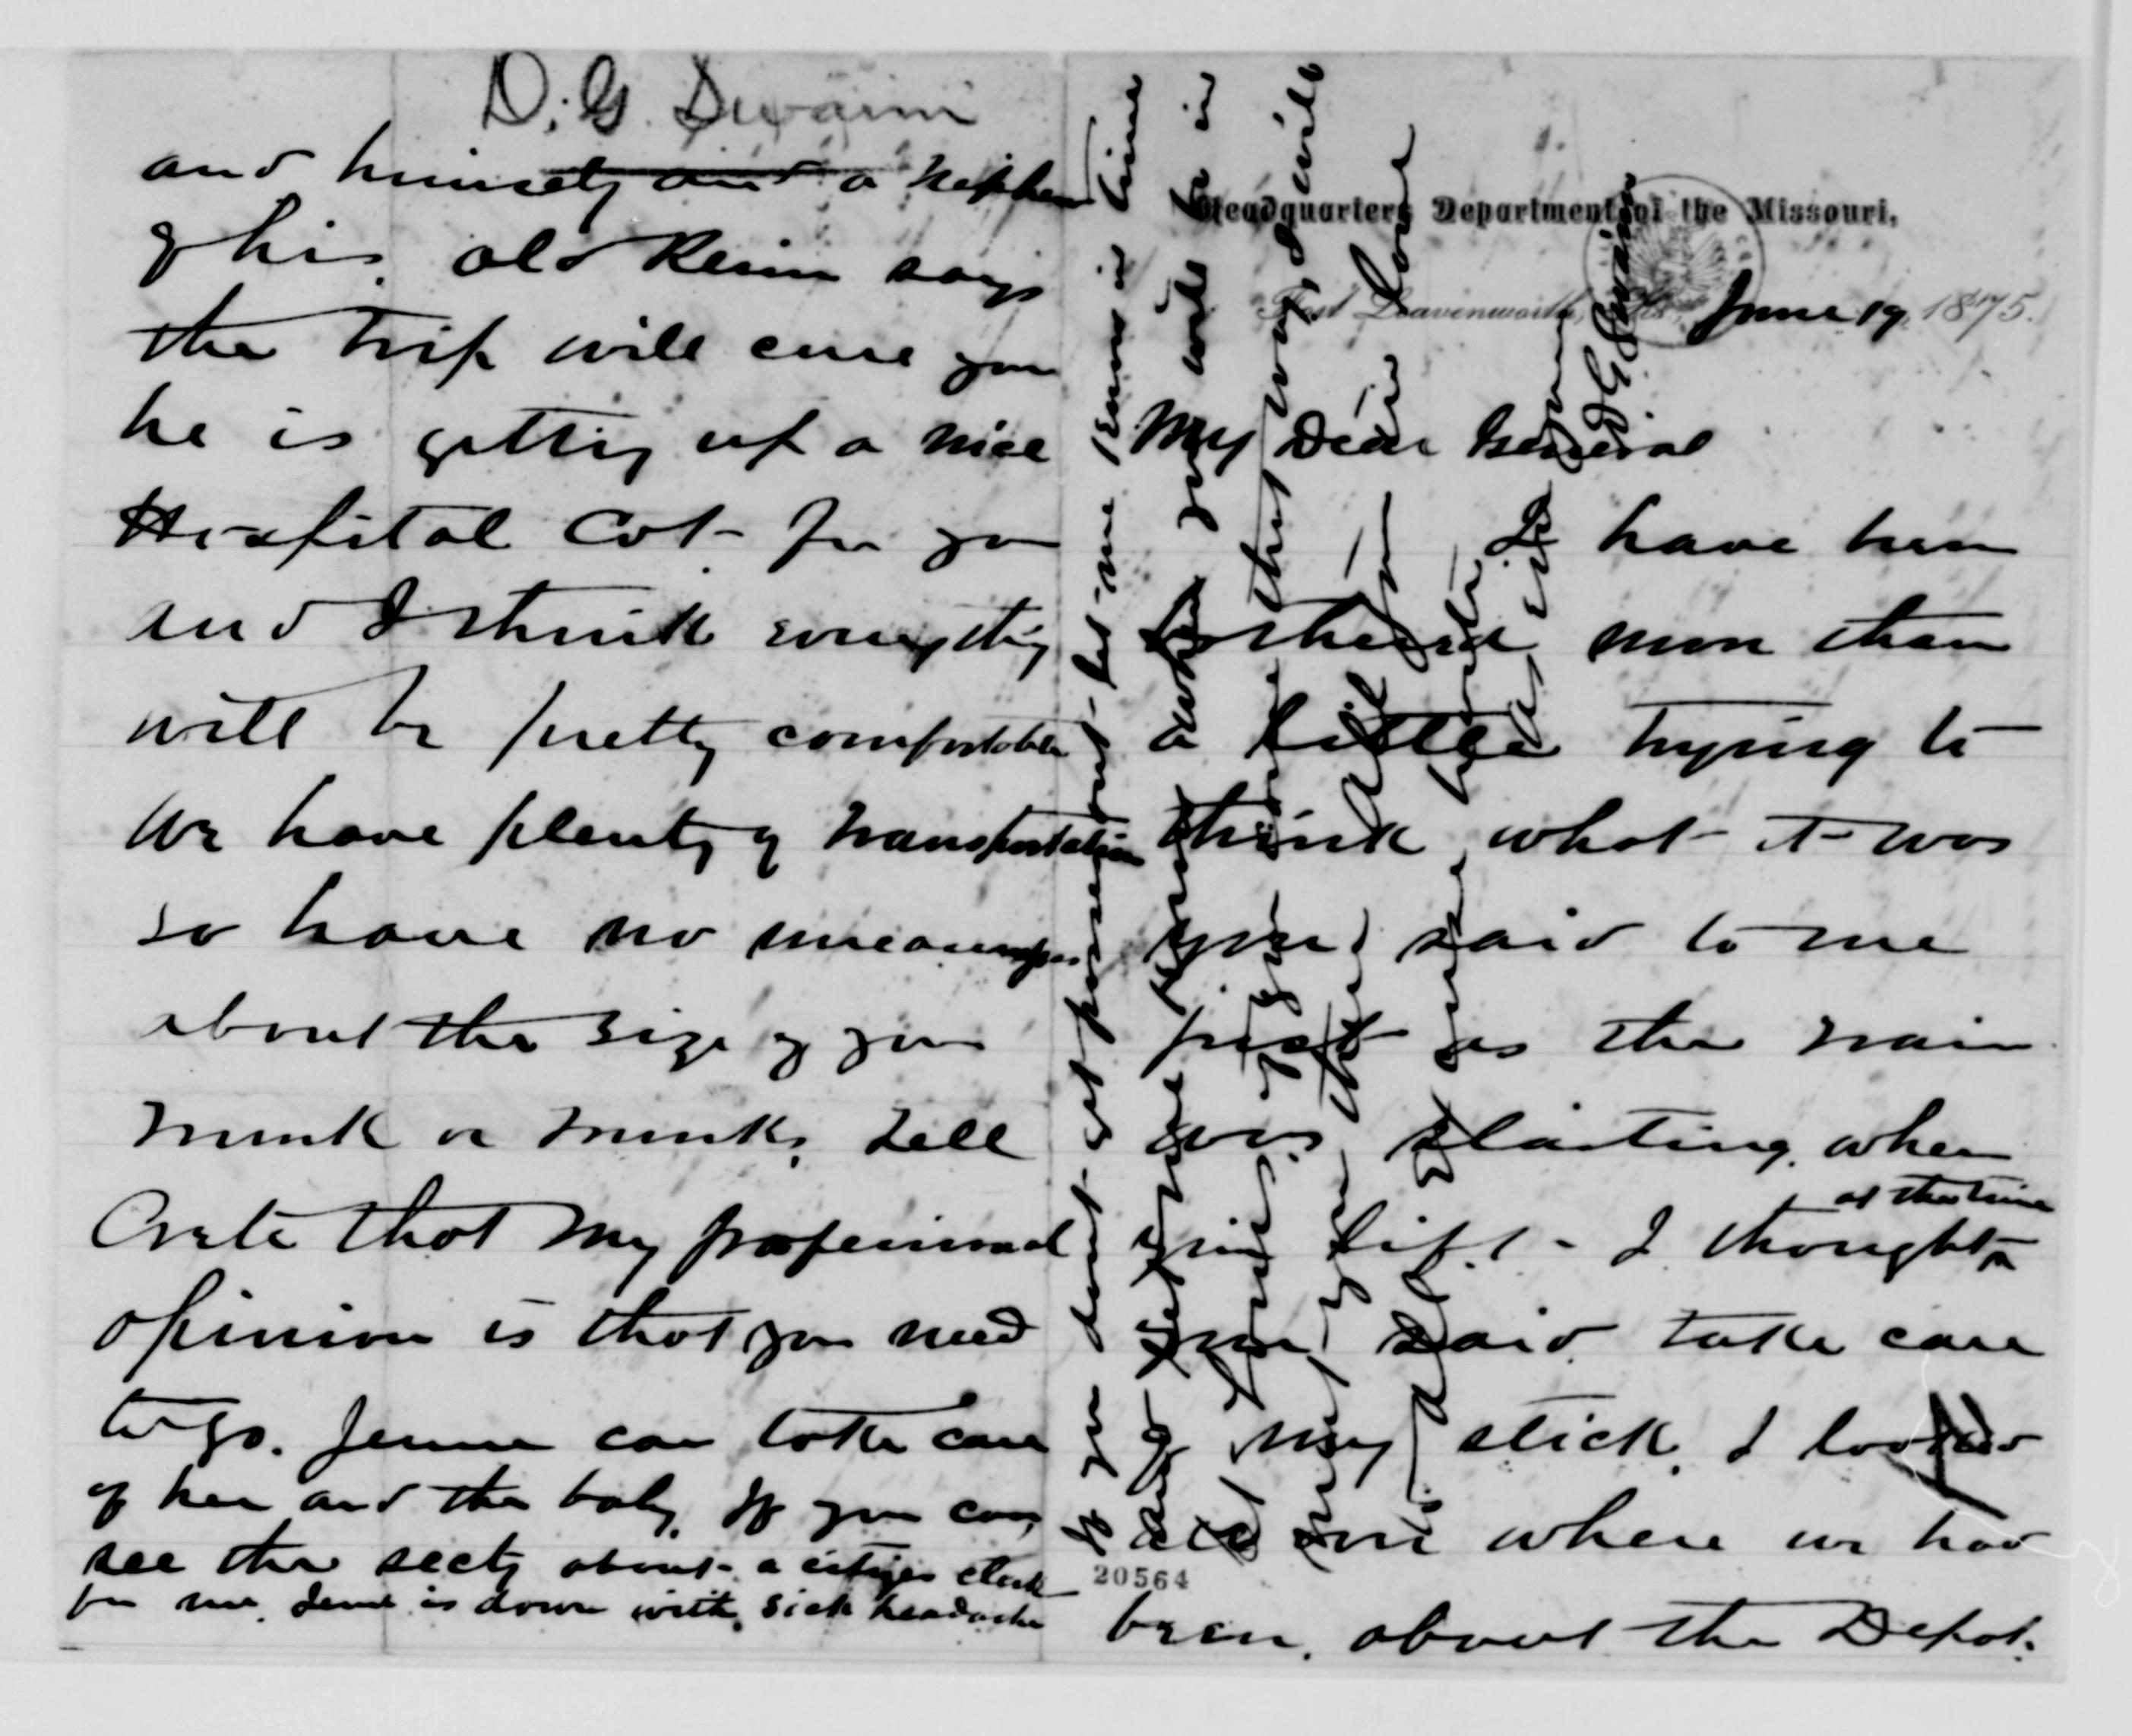 Headquarters Department of the Missouri,
Fort Leavenworth, Ks., June 19 1875.
My Dear General
I have been
bothered more than
a little trying to
think what it was
you said to me
just as the train
was starting. when
you left - I thought at the time
you said take care
of my stick. I looked
all over where we had
been. about the Depot.
20564
D. G. Swaim
and himself and a nephew
of his. old Reim says
the trip will cure you
he is getting up a nice
Hospital Cot for you
and I think everything
will be pretty comfortable
We have plenty of transportation
so have no uneasyness
about the size of your
trunk or trunks. Tell
Crete that my professional
opinion is that you need
to go. Jennie can take care
of her and the baby. If you can
see the secty about a citizen clerk
for me. Jennie is down with sick headache
If you don't get passes out let me know in time
and telegraph me when you will be in
St Louis, if you come that way, I will
meet you there All join in love
As ever Yours
D G Swaim